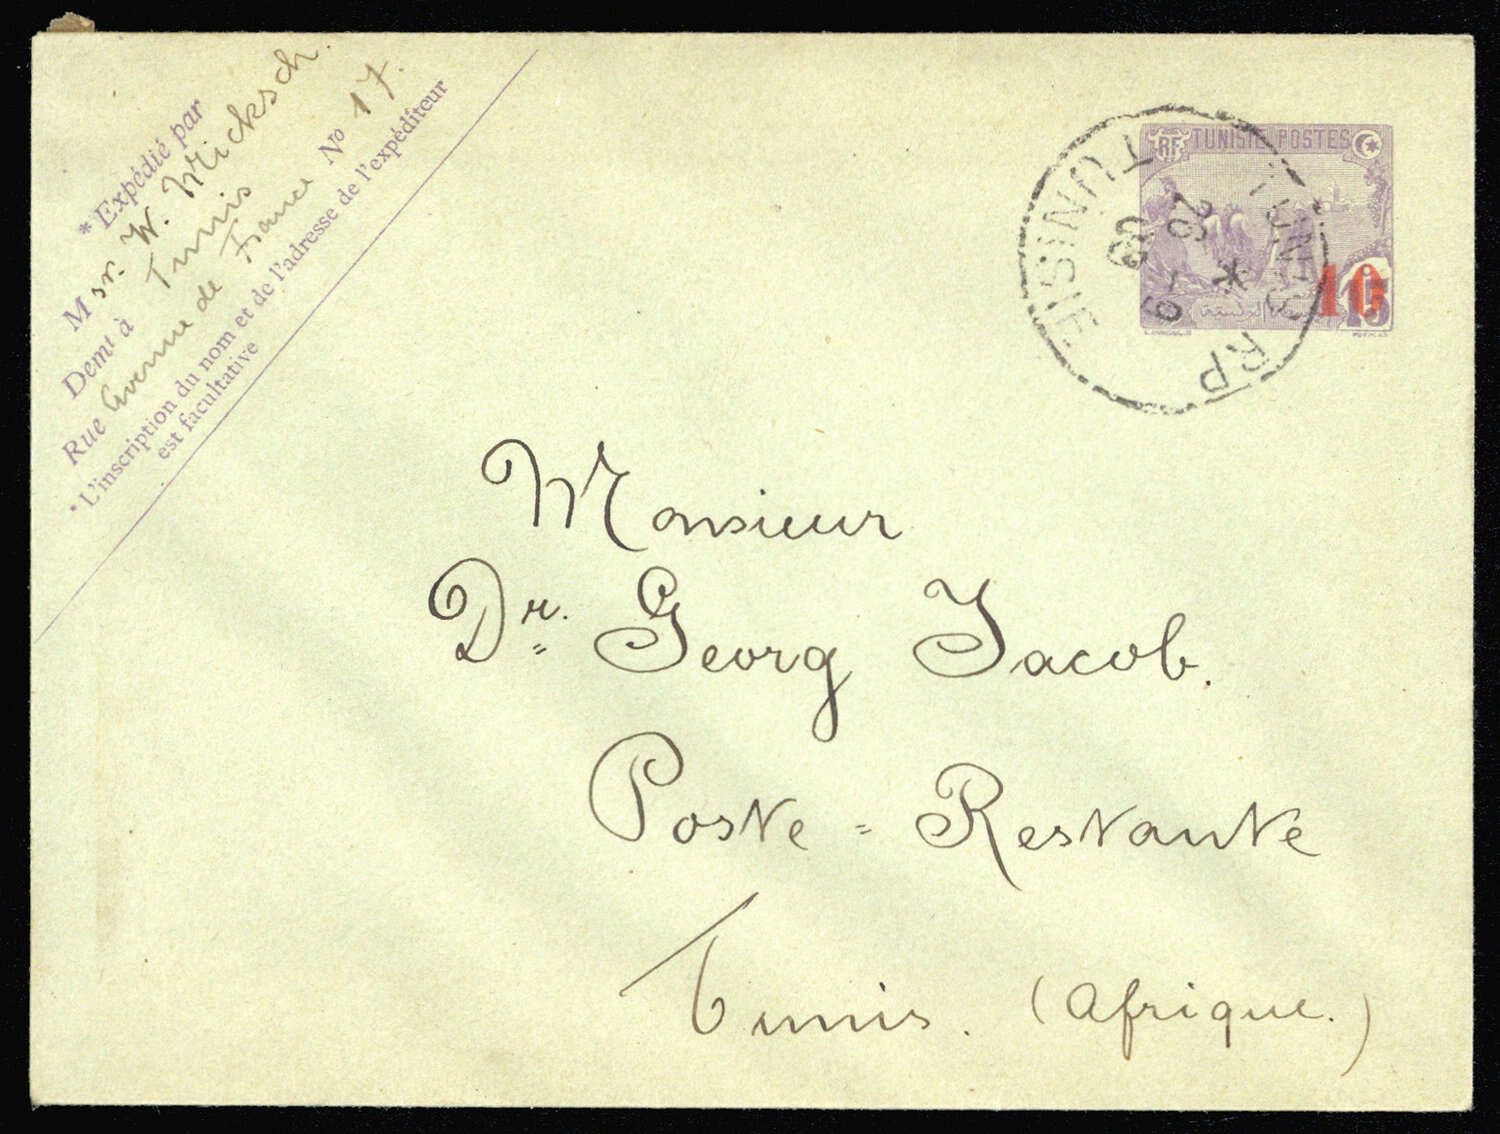 * Expédié par
Msr. W. Wicksch.
Demt à Tunis
Rue Avenue de France No 17.
* L'inscription du nom et de l'adresse de l'expéditeur
est facultative
RF TUNISIE POSTES
10
15
TUNIS RP
TUNISIE
Monsieur
Dr. Georg Jacob.
Poste = Restante
Tunis. (Afrique.)